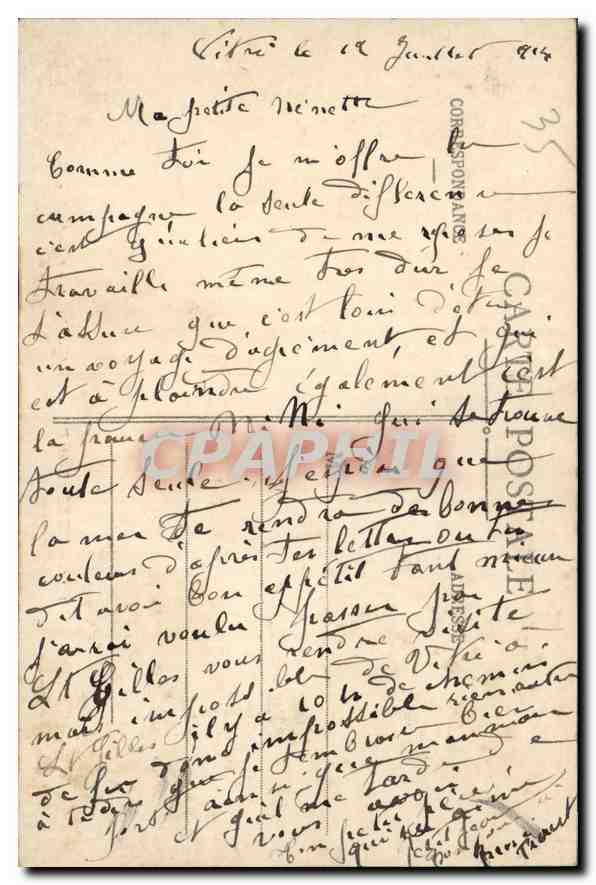 Vitré le 12 Juillet 914
Ma petite Ninette
Comme toi je m'offre la
campagne la seule différence
c'est qu'au lieu de me reposer je
travaille même très dur je
t'assure que c'est loin d'être
un voyage d'agrément, et qui
est à plaindre également c'est
la pauvre NiNi qui se trouve
toute seule. J'espère que
la mer te rendra de bonne
couleurs d'après tes lettres ou tu
dit avoir bon appétit tant mieux
j'aurai voulu passer par
St Gilles vous rendre visite
mais impossible de Vitré à
St Gilles il y a 10 h de chemin
de fer donc impossible rien autre
à te dire que je t'embrasse bien
fort ainsi que maman
et qu'il me tarde de
vous avoir
Ton petit père
qui t'aime
CORRESPONDANCE
CARTE POSTALE
ADRESSE
35
CPAPHIL